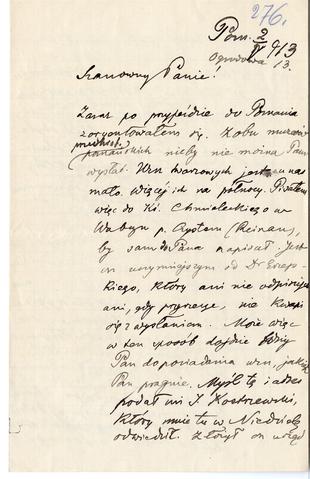 276.
Pozn. 2/IV 1913
Ogrodowa 13.
Szanowny Panie!
Zaraz po przyjeździe do Poznania
zorjentowałem się. Z obu muzeów
poznańskich nieby nie można Panu
wysłać. Urn twarzowych jest u nas
mało. Więcej ich na północy. Pisałem
więc do Ks. Chmieleckiego w
p.
by sam do Pana napisał. Jest
on uczynniejszym od Dr
kiego, który ani nie odpisuje
ani, gdy przyrzecze, nie kwapi
się z wysłaniem. Może więc
w ten sposób dojdzie
Pan do posiadania urn, jakich
Pan pragnie. Myśl tę i adres
podał mi J. Kostrzewski,
który mnie tu w Niedzielę
odwiedził. Złożył on urząd